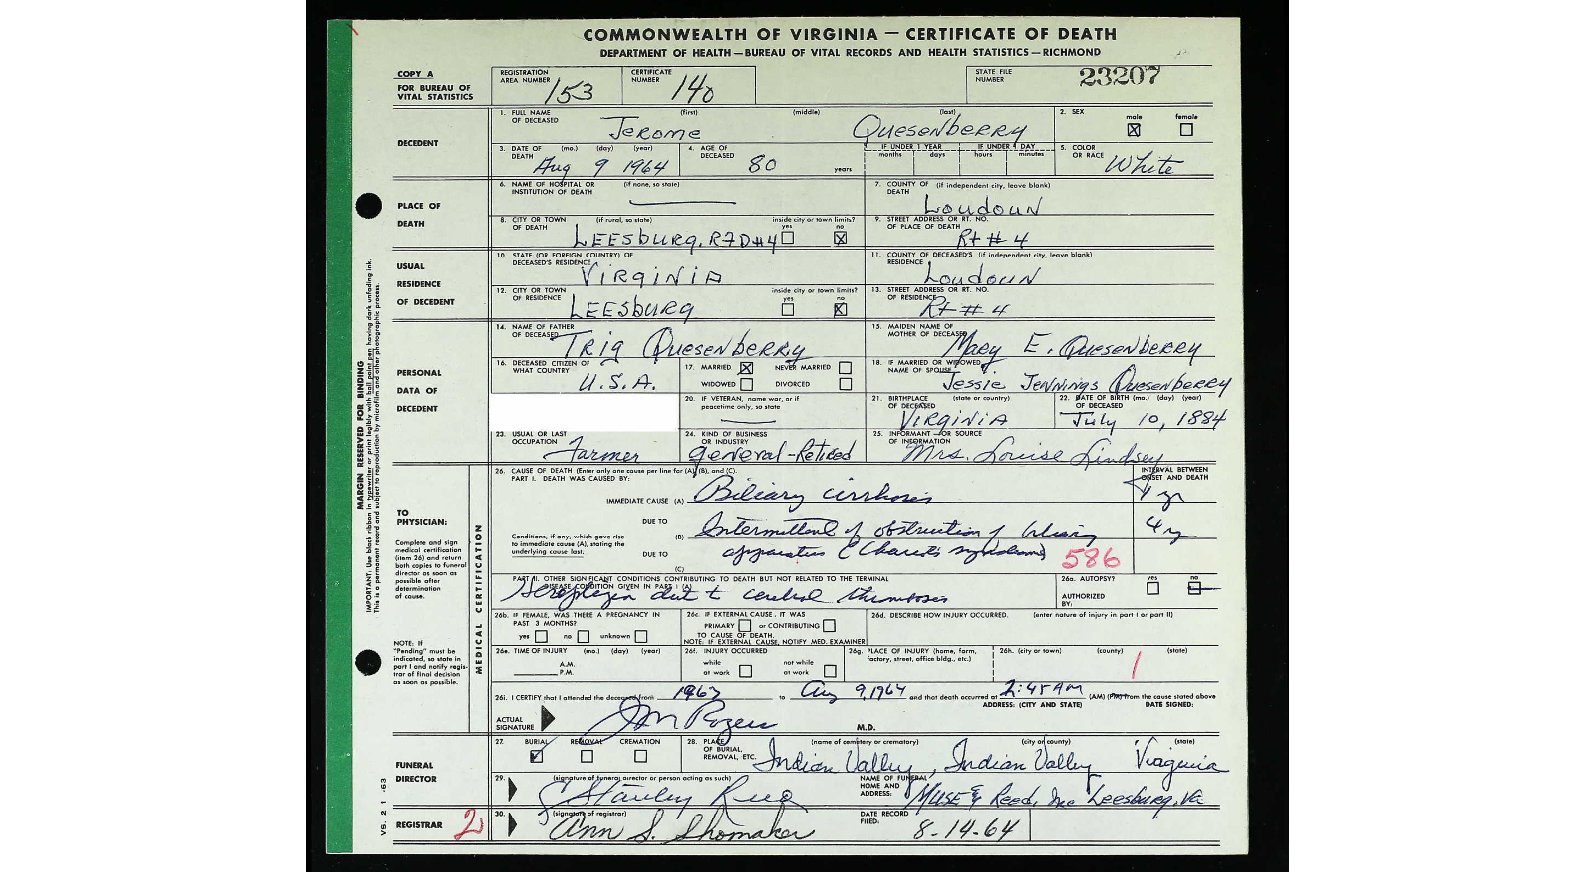 COMMONWEALTH OF VIRGINIA — CERTIFICATE OF DEATH
DEPARTMENT OF HEALTH — BUREAU OF VITAL RECORDS AND HEALTH STATISTICS — RICHMOND
COPY A
FOR BUREAU OF
VITAL STATISTICS
REGISTRATION AREA NUMBER 153
CERTIFICATE NUMBER 140
STATE FILE NUMBER 23207
DECEDENT
1. FULL NAME OF DECEASED (first) (middle) (last) Jerome Quesenberry
2. SEX male ☒ female ☐
3. DATE OF DEATH (mo.) (day) (year) Aug 9 1964
4. AGE OF DECEASED 80 years
IF UNDER 1 YEAR months days IF UNDER 1 DAY hours minutes
5. COLOR OR RACE White
PLACE OF DEATH
6. NAME OF HOSPITAL OR INSTITUTION OF DEATH (if none, so state)
7. COUNTY OF DEATH (if independent city, leave blank) Loudoun
8. CITY OR TOWN OF DEATH (if rural, so state) LEESburg, RFD#4 inside city or town limits? yes ☐ no ☒
9. STREET ADDRESS OR RT. NO. OF PLACE OF DEATH Rt # 4
USUAL RESIDENCE OF DECEDENT
10. STATE (OR FOREIGN COUNTRY) OF DECEASED'S RESIDENCE VIRGINIA
11. COUNTY OF DECEASED'S RESIDENCE (if independent city, leave blank) Loudoun
12. CITY OR TOWN OF RESIDENCE LEESBURG inside city or town limits? yes ☐ no ☒
13. STREET ADDRESS OR RT. NO. OF RESIDENCE Rt # 4
PERSONAL DATA OF DECEDENT
14. NAME OF FATHER OF DECEASED Trig Quesenberry
15. MAIDEN NAME OF MOTHER OF DECEASED Mary E. Quesenberry
16. DECEASED CITIZEN OF WHAT COUNTRY U.S.A.
17. MARRIED ☒ NEVER MARRIED ☐ WIDOWED ☐ DIVORCED ☐
18. IF MARRIED OR WIDOWED NAME OF SPOUSE Jessie Jennings Quesenberry
20. IF VETERAN, name war, or if peacetime only, so state
21. BIRTHPLACE OF DECEASED (state or country) VIRGINIA
22. DATE OF BIRTH (mo.) (day) (year) OF DECEASED July 10, 1884
23. USUAL OR LAST OCCUPATION Farmer
24. KIND OF BUSINESS OR INDUSTRY general-Retired
25. INFORMANT OR SOURCE OF INFORMATION Mrs. Louise Lindsey
MARGIN RESERVED FOR BINDING
IMPORTANT: Use black ribbon in typewriter or print legibly with ball point pen having dark unfading ink.
This is a permanent record and subject to reproduction by microfilm and other photographic process.
TO PHYSICIAN:
Complete and sign medical certification (item 26) and return both copies to funeral director as soon as possible after determination of cause.
NOTE: IF "Pending" must be indicated, so state in part I and notify registrar of final decision as soon as possible.
MEDICAL CERTIFICATION
26. CAUSE OF DEATH (Enter only one cause per line for (A), (B), and (C).
INTERVAL BETWEEN ONSET AND DEATH
PART I. DEATH WAS CAUSED BY:
IMMEDIATE CAUSE (A) Biliary cirrhosis
Conditions, if any, which gave rise to immediate cause (A), stating the underlying cause last.
DUE TO (B) Intermittent obstruction of biliary 4 yr
DUE TO (C) apparatus (Charcot's syndrome) 586
PART II. OTHER SIGNIFICANT CONDITIONS CONTRIBUTING TO DEATH BUT NOT RELATED TO THE TERMINAL DISEASE CONDITION GIVEN IN PART I (A)
Hemiplegia due to cerebral thrombosis
26a. AUTOPSY? yes ☐ no ☐
AUTHORIZED BY:
26b. IF FEMALE, WAS THERE A PREGNANCY IN PAST 3 MONTHS? yes ☐ no ☐ unknown ☐
26c. IF EXTERNAL CAUSE, IT WAS PRIMARY ☐ or CONTRIBUTING ☐ TO CAUSE OF DEATH.
NOTE: IF EXTERNAL CAUSE, NOTIFY MED. EXAMINER
26d. DESCRIBE HOW INJURY OCCURRED. (enter nature of injury in part I or part II)
26e. TIME OF INJURY (mo.) (day) (year) A.M. P.M.
26f. INJURY OCCURRED while at work ☐ not while at work ☐
26g. PLACE OF INJURY (home, farm, factory, street, office bldg., etc.)
26h. (city or town) (county) (state)
26i. I CERTIFY that I attended the deceased from to Aug 9, 1964 and that death occurred at 2:45 AM (AM) (PM) from the cause stated above
ADDRESS: (CITY AND STATE) DATE SIGNED:
ACTUAL SIGNATURE Rogers M.D.
FUNERAL DIRECTOR
27. BURIAL ☑ REMOVAL ☐ CREMATION ☐
28. PLACE OF BURIAL, REMOVAL, ETC. (name of cemetery or crematory) (city or county) (state) Indian Valley, Indian Valley Virginia
29. (signature of funeral director or person acting as such) Stanley
NAME OF FUNERAL HOME AND ADDRESS: MUSE & Reed, Inc Leesburg, Va
REGISTRAR 2
30. (signature of registrar) Ann S. Shomaker
DATE RECORD FILED: 8-14-64
VS. 2 1 -63